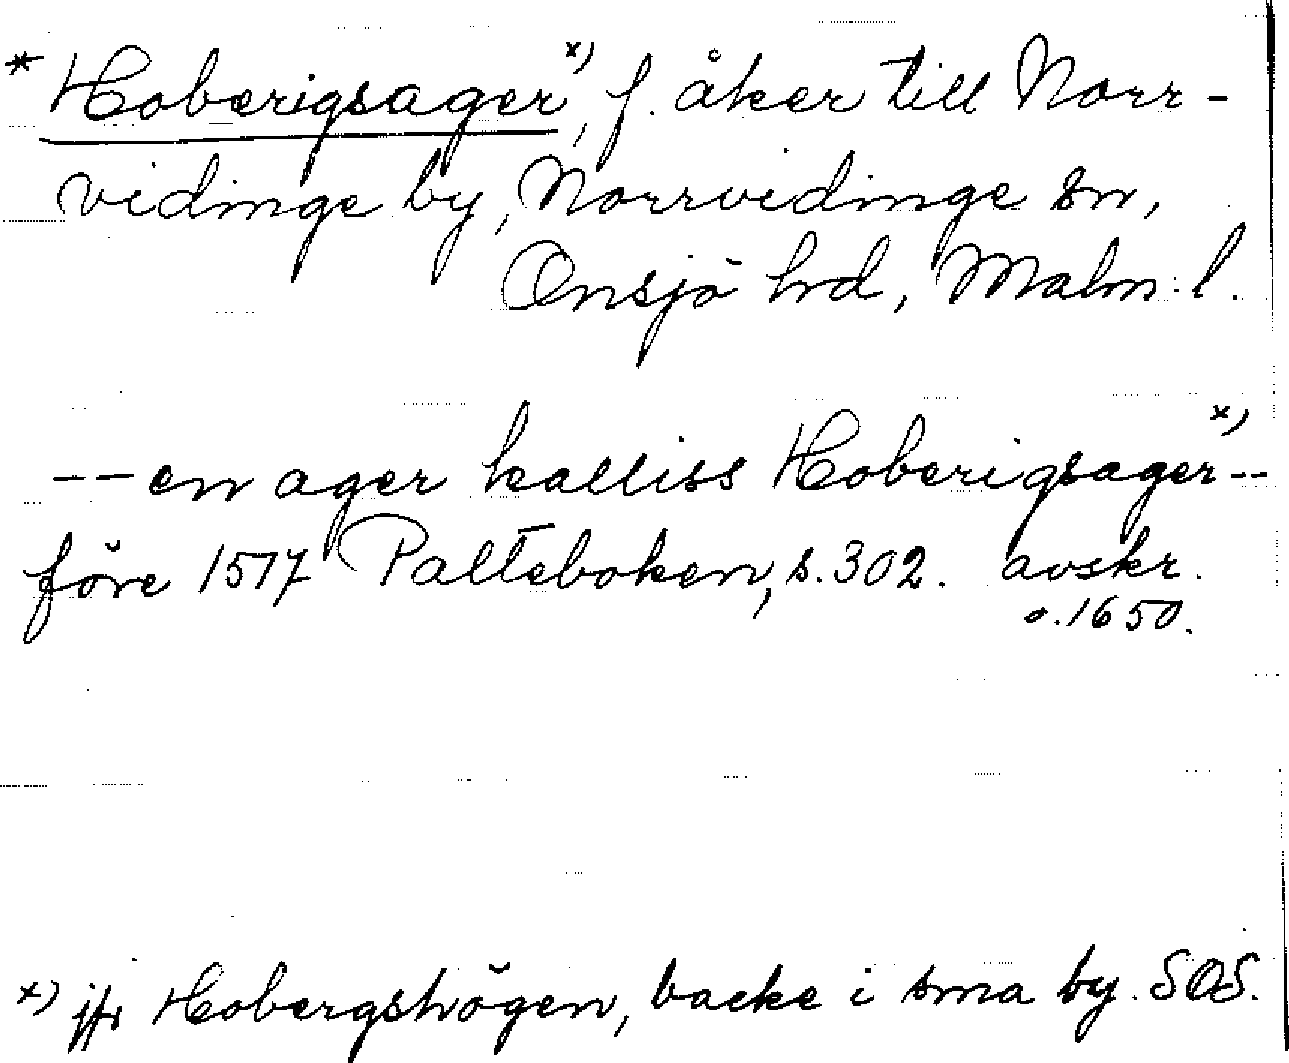 * Hoberigsager x), f. åker till Norr-
vidinge by, Norrvidinge sn,
Onsjö hd, Malm. l.
-- en ager kalliss Hoberigsager x) --
före 1517 Palteboken, s. 302. avskr.
o. 1650.
x) jfr Hobergshögen, backe i sma by. SOS.